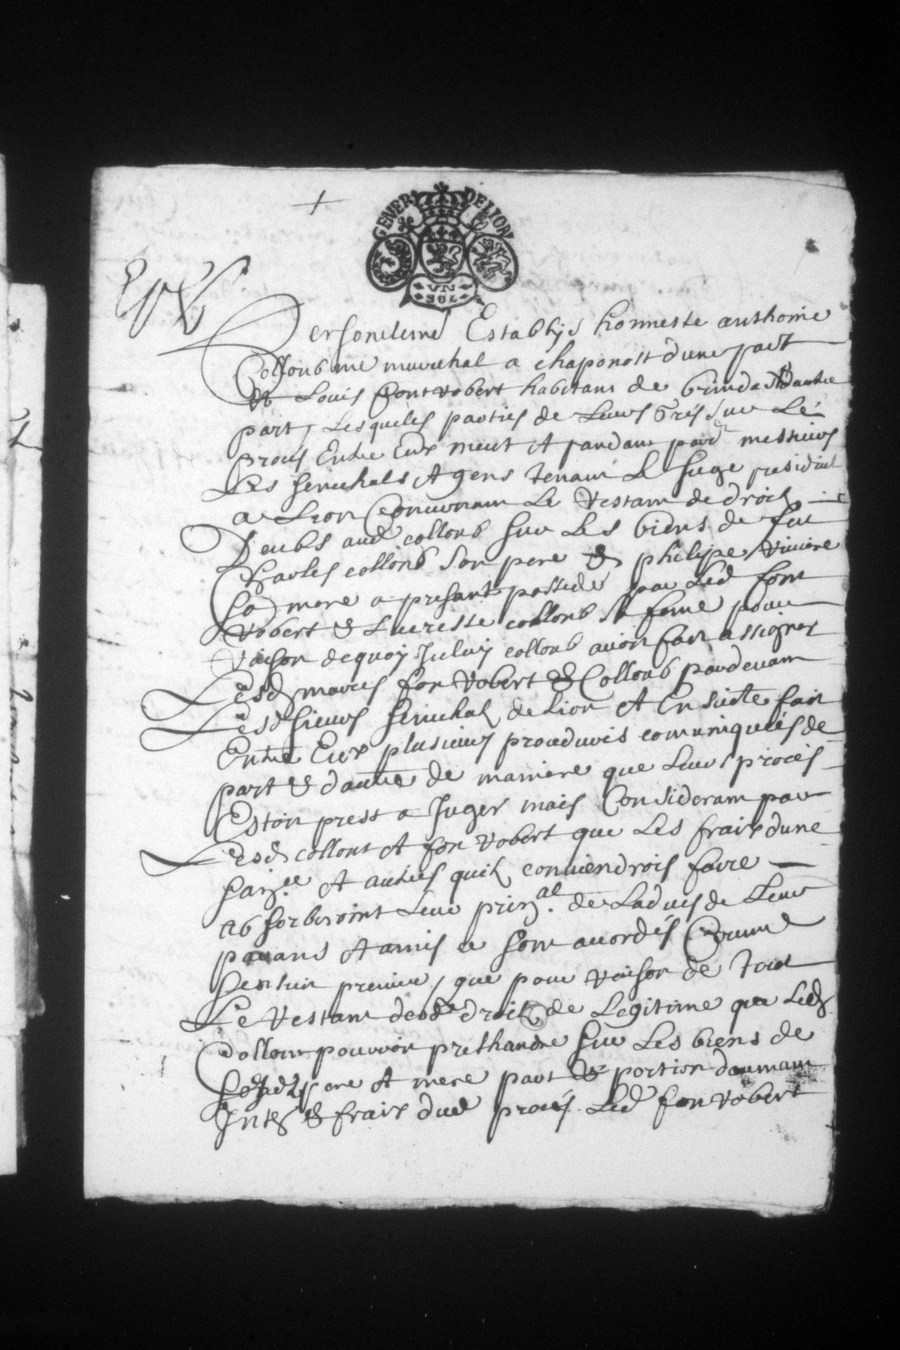 GENER DE LION
VN
SOL
Personelemt Establys honneste anthoine
Collomb me mareschal a chaponost dune part
Et Louis font Robert habitans de brinda Et dautre
part, Lesqueles parties de Leurs gres sur Le
procés Entre Eux meut et pandant par messieurs
Les seneschals et gens tenant Le siege presidial
a Lion concernant Le Restam de droitz
deubs aud collomb sur Les biens de feu
Charles collomb son pere & philipe Riviere
sa mere a present possedé par Led font
Robert & Lucresse collomb sa fame pour
Raison dequoy Iceluy collomb avoit fait assigner
Lesd maries fon Robert & Collomb pardevant
Lesd sieurs seneschal de Lion et En suitte fait
Entre Eux plusieurs procedures comuniquées de
part & dautre de maniere que Leur procès
Estoit prest a Juger mais Considerant par
Lesd collomb et fon Robert que Les fraix dune
et autres quil conviendroit faire
absorberoint Leur prinal de Ladvis de Leurs
parans et amis ce sont accordés Comme
sensuit premier, que pour Raison de tout
Le Restam desd droitz de Legitime que Led
Collomb pouvoit prethandre sur Les biens de
sesd pere et mere part & portion daumant
Intz & fraix dud procés Led fon Robert